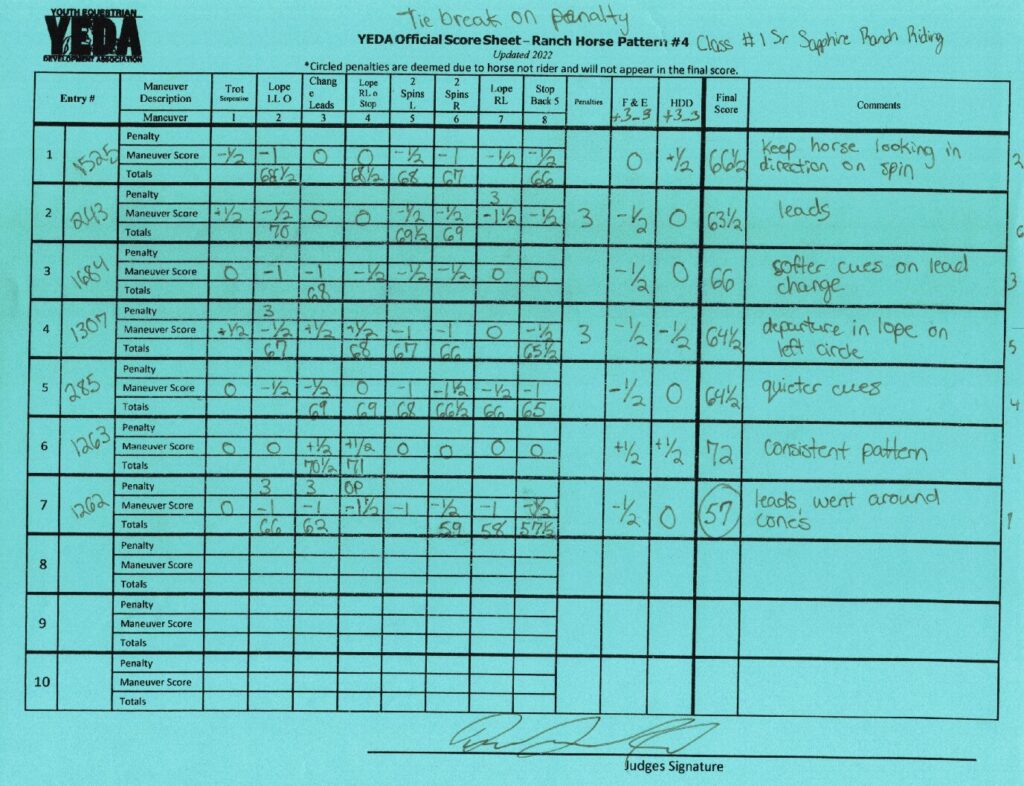 Tie break on penalty
YOUTH EQUESTRIAN
YEDA
DEVELOPMENT ASSOCIATION
YEDA Official Score Sheet – Ranch Horse Pattern #4 Class #1 Sr Sapphire Ranch Riding
Updated 2022
*Circled penalties are deemed due to horse not rider and will not appear in the final score.
Entry # Maneuver Description Trot Serpentine Lope LL O Chang e Leads Lope RL o Stop 2 Spins L 2 Spins R Lope RL Stop Back 5 Penalties F & E +3_-3 HDD +3_-3 Final Score Comments
Maneuver 1 2 3 4 5 6 7 8
1 1525 Penalty
Maneuver Score -½ -1 0 0 -½ -1 -½ -½ 0 +½ 66½ Keep horse looking in direction on spin 2
Totals 68½ 68½ 68 67 66
2 243 Penalty 3
Maneuver Score +½ -½ 0 0 -½ -½ -1½ -½ 3 -½ 0 63½ leads 6
Totals 70 69½ 69
3 1684 Penalty
Maneuver Score 0 -1 -1 -½ -½ -½ 0 0 -½ 0 66 softer cues on lead change 3
Totals 68
4 1307 Penalty 3
Maneuver Score +½ -½ +½ +½ -1 -1 0 -½ 3 -½ -½ 64½ departure in lope on left circle 5
Totals 67 68 67 66 65½
5 285 Penalty
Maneuver Score 0 -½ -½ 0 -1 -1½ -½ -1 -½ 0 64½ quieter cues 4
Totals 69 69 68 66½ 66 65
6 1263 Penalty
Maneuver Score 0 0 +½ +½ 0 0 0 0 +½ +½ 72 consistent pattern 1
Totals 70½ 71
7 1262 Penalty 3 3 OP
Maneuver Score 0 -1 -1 -1½ -1 -½ -1 -½ -½ 0 57 leads, went around cones
Totals 66 62 59 58 57½
8 Penalty
Maneuver Score
Totals
9 Penalty
Maneuver Score
Totals
10 Penalty
Maneuver Score
Totals
Judges Signature